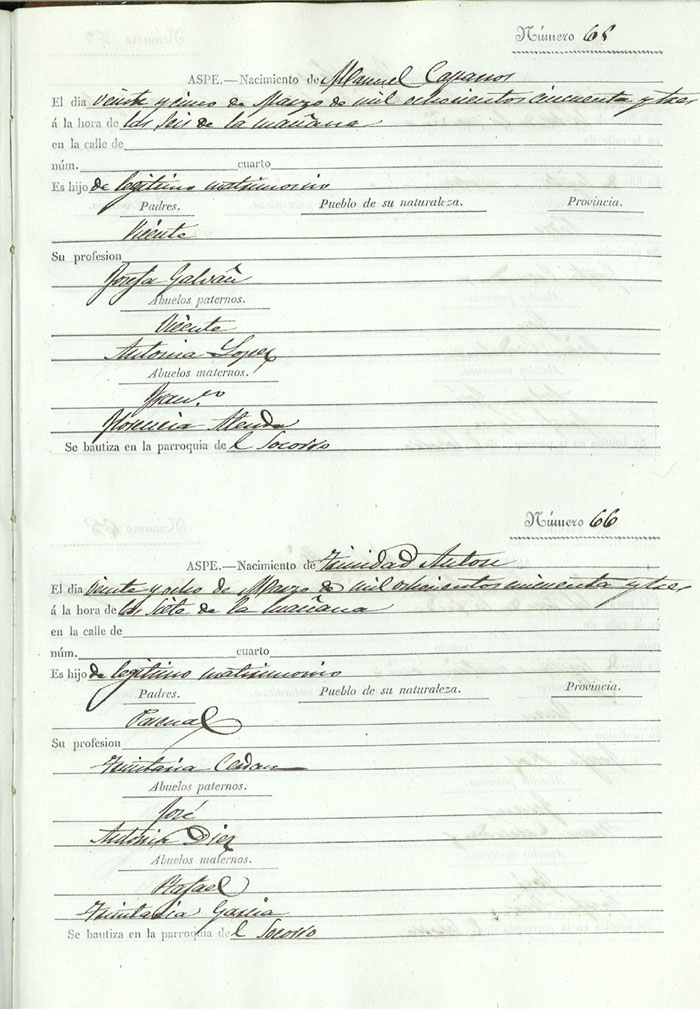 Número 65
ASPE.—Nacimiento de Manuel Caparros
El dia veinte y cinco de Marzo de mil ochocientos cincuenta y tres
á la hora de las seis de la mañana
en la calle de
núm. cuarto
Es hijo de legitimo matrimonio
Padres. Pueblo de su naturaleza. Provincia.
Vicente
Su profesion
Josefa Galvañ
Abuelos paternos.
Vicente
Antonia Lopez
Abuelos maternos.
Fran.co
Florencia Alenda
Se bautiza en la parroquia de l Socorro
Número 66
ASPE.—Nacimiento de Trinidad Anton
El dia veinte y ocho de Marzo de mil ochocientos cincuenta y tres
á la hora de las siete de la mañana
en la calle de
núm. cuarto
Es hijo de legitimo matrimonio
Padres. Pueblo de su naturaleza. Provincia.
Pascual
Su profesion
Trinitaria Cerdan
Abuelos paternos.
José
Antonia Diez
Abuelos maternos.
Rafael
Trinitaria Garcia
Se bautiza en la parroquia de l Socorro